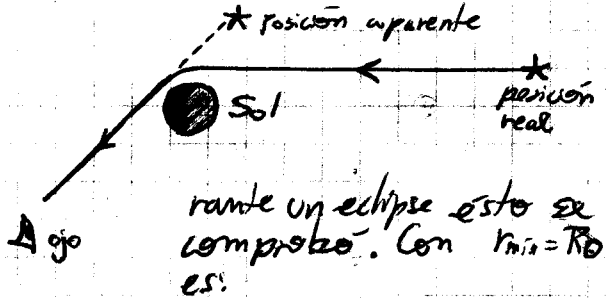 posición aparente
Sol
posición
real
ojo
rante un eclipse ésto se
comprobó. Con r_min = R_⊙
es: